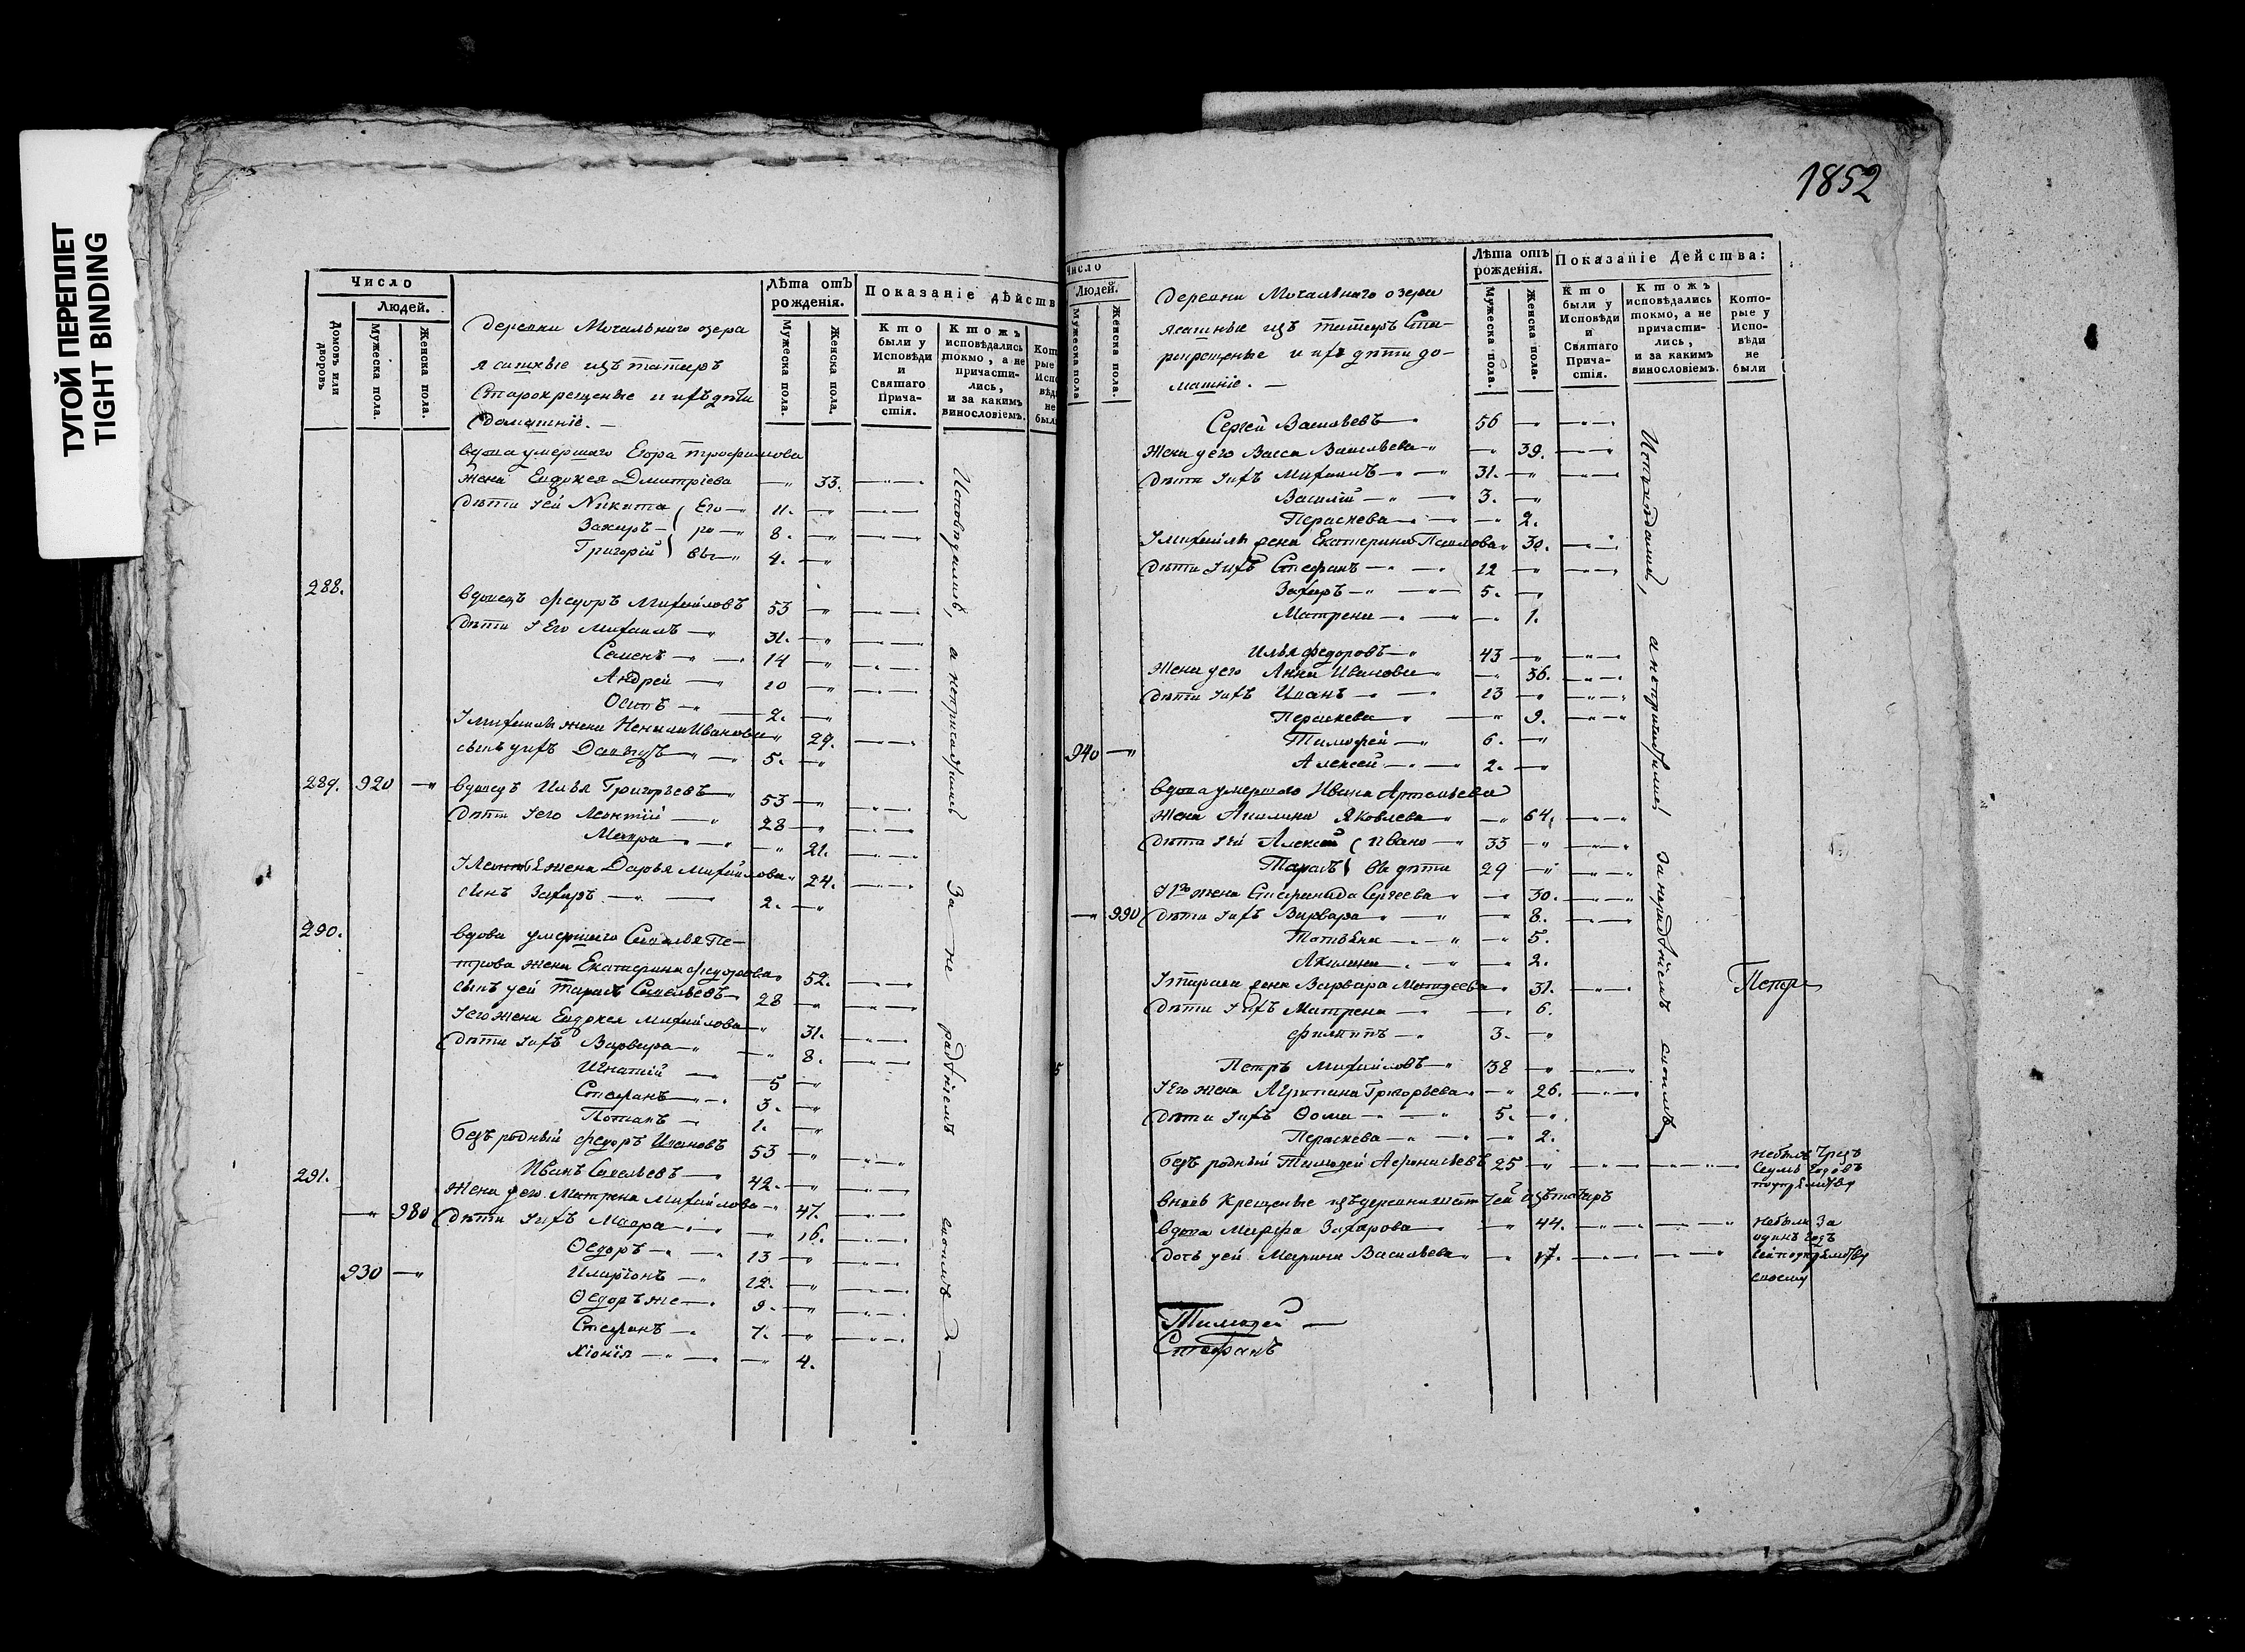 ТУГОЙ ПЕРЕПЛЕТ
TIGHT BINDING
Число
Людей.
Домовъ или дворовъ
Мужеска пола.
Женска пола.
Деревни Мочальнаго озера
ясашные изъ татаръ
Старокрещеные и ихъ дети
Домашніе. —
Лѣта отъ рожденія.
Мужеска пола.
Женска пола.
Показаніе дѣйств
Кто были у Исповѣди и Святаго Прича-стія.
Ктожъ исповѣдались токмо, а не причасти-лись, и за какимъ винословіемъ.
вдова умершаго Егора трофимова
жена Евдокея Дмитріева 33.
Дѣти Ѵей Никита Его 11.
Захаръ ро 8.
Григорій вы 4.
288. вдовецъ Федоръ Михайловъ 53
Дѣти Ѵ Его Михаилъ 31.
Семенъ 14
Андрей 10
Осипъ 2.
Ѵ Михаила жена Ненила Иванова 29.
сынъ уихъ Давыдъ 5.
289. 920 вдовецъ Илья Григорьевъ 53
Дѣти Ѵего Леонтій 28
Мавра 21.
Ѵ Леонтья жена Дарья Михайлова 24.
сынъ Захаръ 2.
290. вдова умершаго Савелья Пе-
трова жена Екатерина Федорова 52.
сынъ уей Тарасъ Савельевъ 28
Ѵего жена Евдокея Михайлова 31.
Дѣти Ѵихъ Варвара 8.
Игнатій 5
Стефанъ 3.
Потапъ 1.
безъ родный Федоръ Ивановъ 53
291. Иванъ Савельевъ 42.
Жена уего Матрена Михайлова 47.
980 Дѣти Ѵихъ Мавра 16.
Ѳедоръ 13
930 Иларіонъ 12.
Ѳедоръ же 9.
Стефанъ 7.
Хіонія 4.
Исповѣдались, а непричастились За не радѣніемъ своимъ
1852
Число
Людей.
Мужеска пола
Женска пола.
Деревни Мочальнаго озера
ясашные изъ татаръ Ста-
рокрещеные и ихъ дѣти до-
машніе. —
Лѣта отъ рожденія.
Мужеска пола.
Женска пола.
Показаніе Дейсшва:
Кто были у Исповѣди и Святаго Прича-стія.
Ктожъ исповѣдались токмо, а не причасти-лись, и за какимъ винословіемъ.
Кото-рые у Испо-вѣди не были
Сергей Васильевъ 56
Жена уего Васса Васильева 39.
Дѣти Ѵихъ Михаилъ 31.
Василій 3.
Параскева 2.
Ѵ Михайлы жена Екатерина Павлова 30.
Дѣти Ѵихъ Стефанъ 12
Захаръ 5.
Матрена 1.
Илья Федоровъ 43
Жена уего Анна Иванова 36.
Дѣти Ѵихъ Иванъ 13
Параскева 9.
Тимофей 6.
940 Алексей 2.
вдова умершаго Ивана Артемьева
жена Акилина Яковлева 64.
Дѣти Ѵей Алексей Ивано 33
Тарасъ вы дѣти 29
Ѵ 1го жена Степанида Сергеева 30.
990 Дѣти Ѵихъ Варвара 8.
Татьяна 5.
Акилина 2.
Ѵ тараса жена Варвара Матвеева 31.
Дѣти Ѵихъ Матрена 6.
Филипъ 3.
Петръ Михайловъ 38
Ѵего жена Агрипина Григорьева 26.
Дѣти Ѵихъ Ѳома 5.
Параскева 2.
безъ родный Тимофей Афонасьевъ 25
вновь Крещеные изъ деревни изъ татаръ
вдова Марфа Захарова 44.
Дочь уей Марина Васильева 17.
Исповѣдались, а непричастились За нерадѣніемъ своимъ
Петр
небылъ
небыли За
одинъ годъ
своему
Тимофей —
Стефанъ